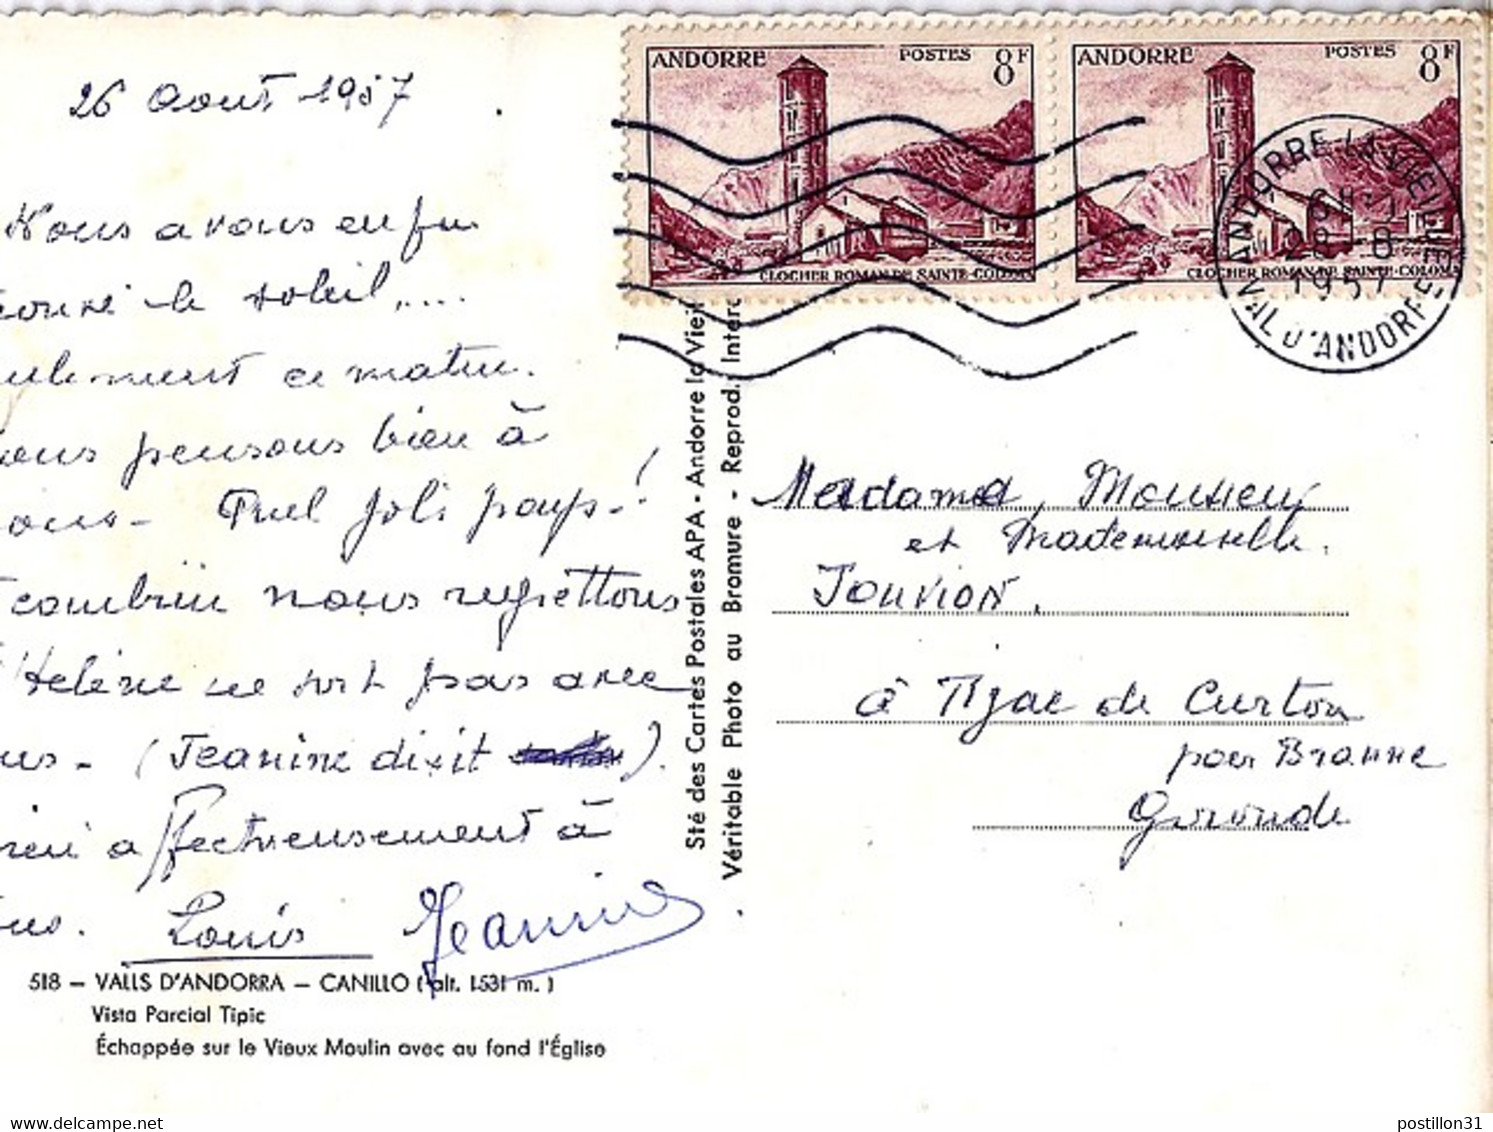 26 Aout 1957
Nous avons enfin
trouvé le soleil,....
seulement ce matin.
Nous pensons bien à
vous - Quel joli pays-!
et combien nous regrettons
Helène ne soit pas avec
nous - (Jeanine dixit ).
affectueusement à
vous. Louis Jeannine
518 - VALLS D'ANDORRA - CANILLO (alt. 1.531 m.)
Vista Parcial Tipic
Échappée sur le Vieux Moulin avec au fond l'Église
Sté des Cartes Postales APA - Andorre la Vieil
Véritable Photo au Bromure - Reprod. Interd
ANDORRE POSTES 8F
CLOCHER ROMAN DE SAINTE-COLOMA
ANDORRE POSTES 8F
CLOCHER ROMAN DE SAINTE-COLOMA
ANDORRE-LA-VIEILLE
28-8
1957
VAL D'ANDORRE
Madame, Monsieur
et Mademoiselle.
Jouvion.
à Tizac de Curton
par Branne
Gironde
postillon31